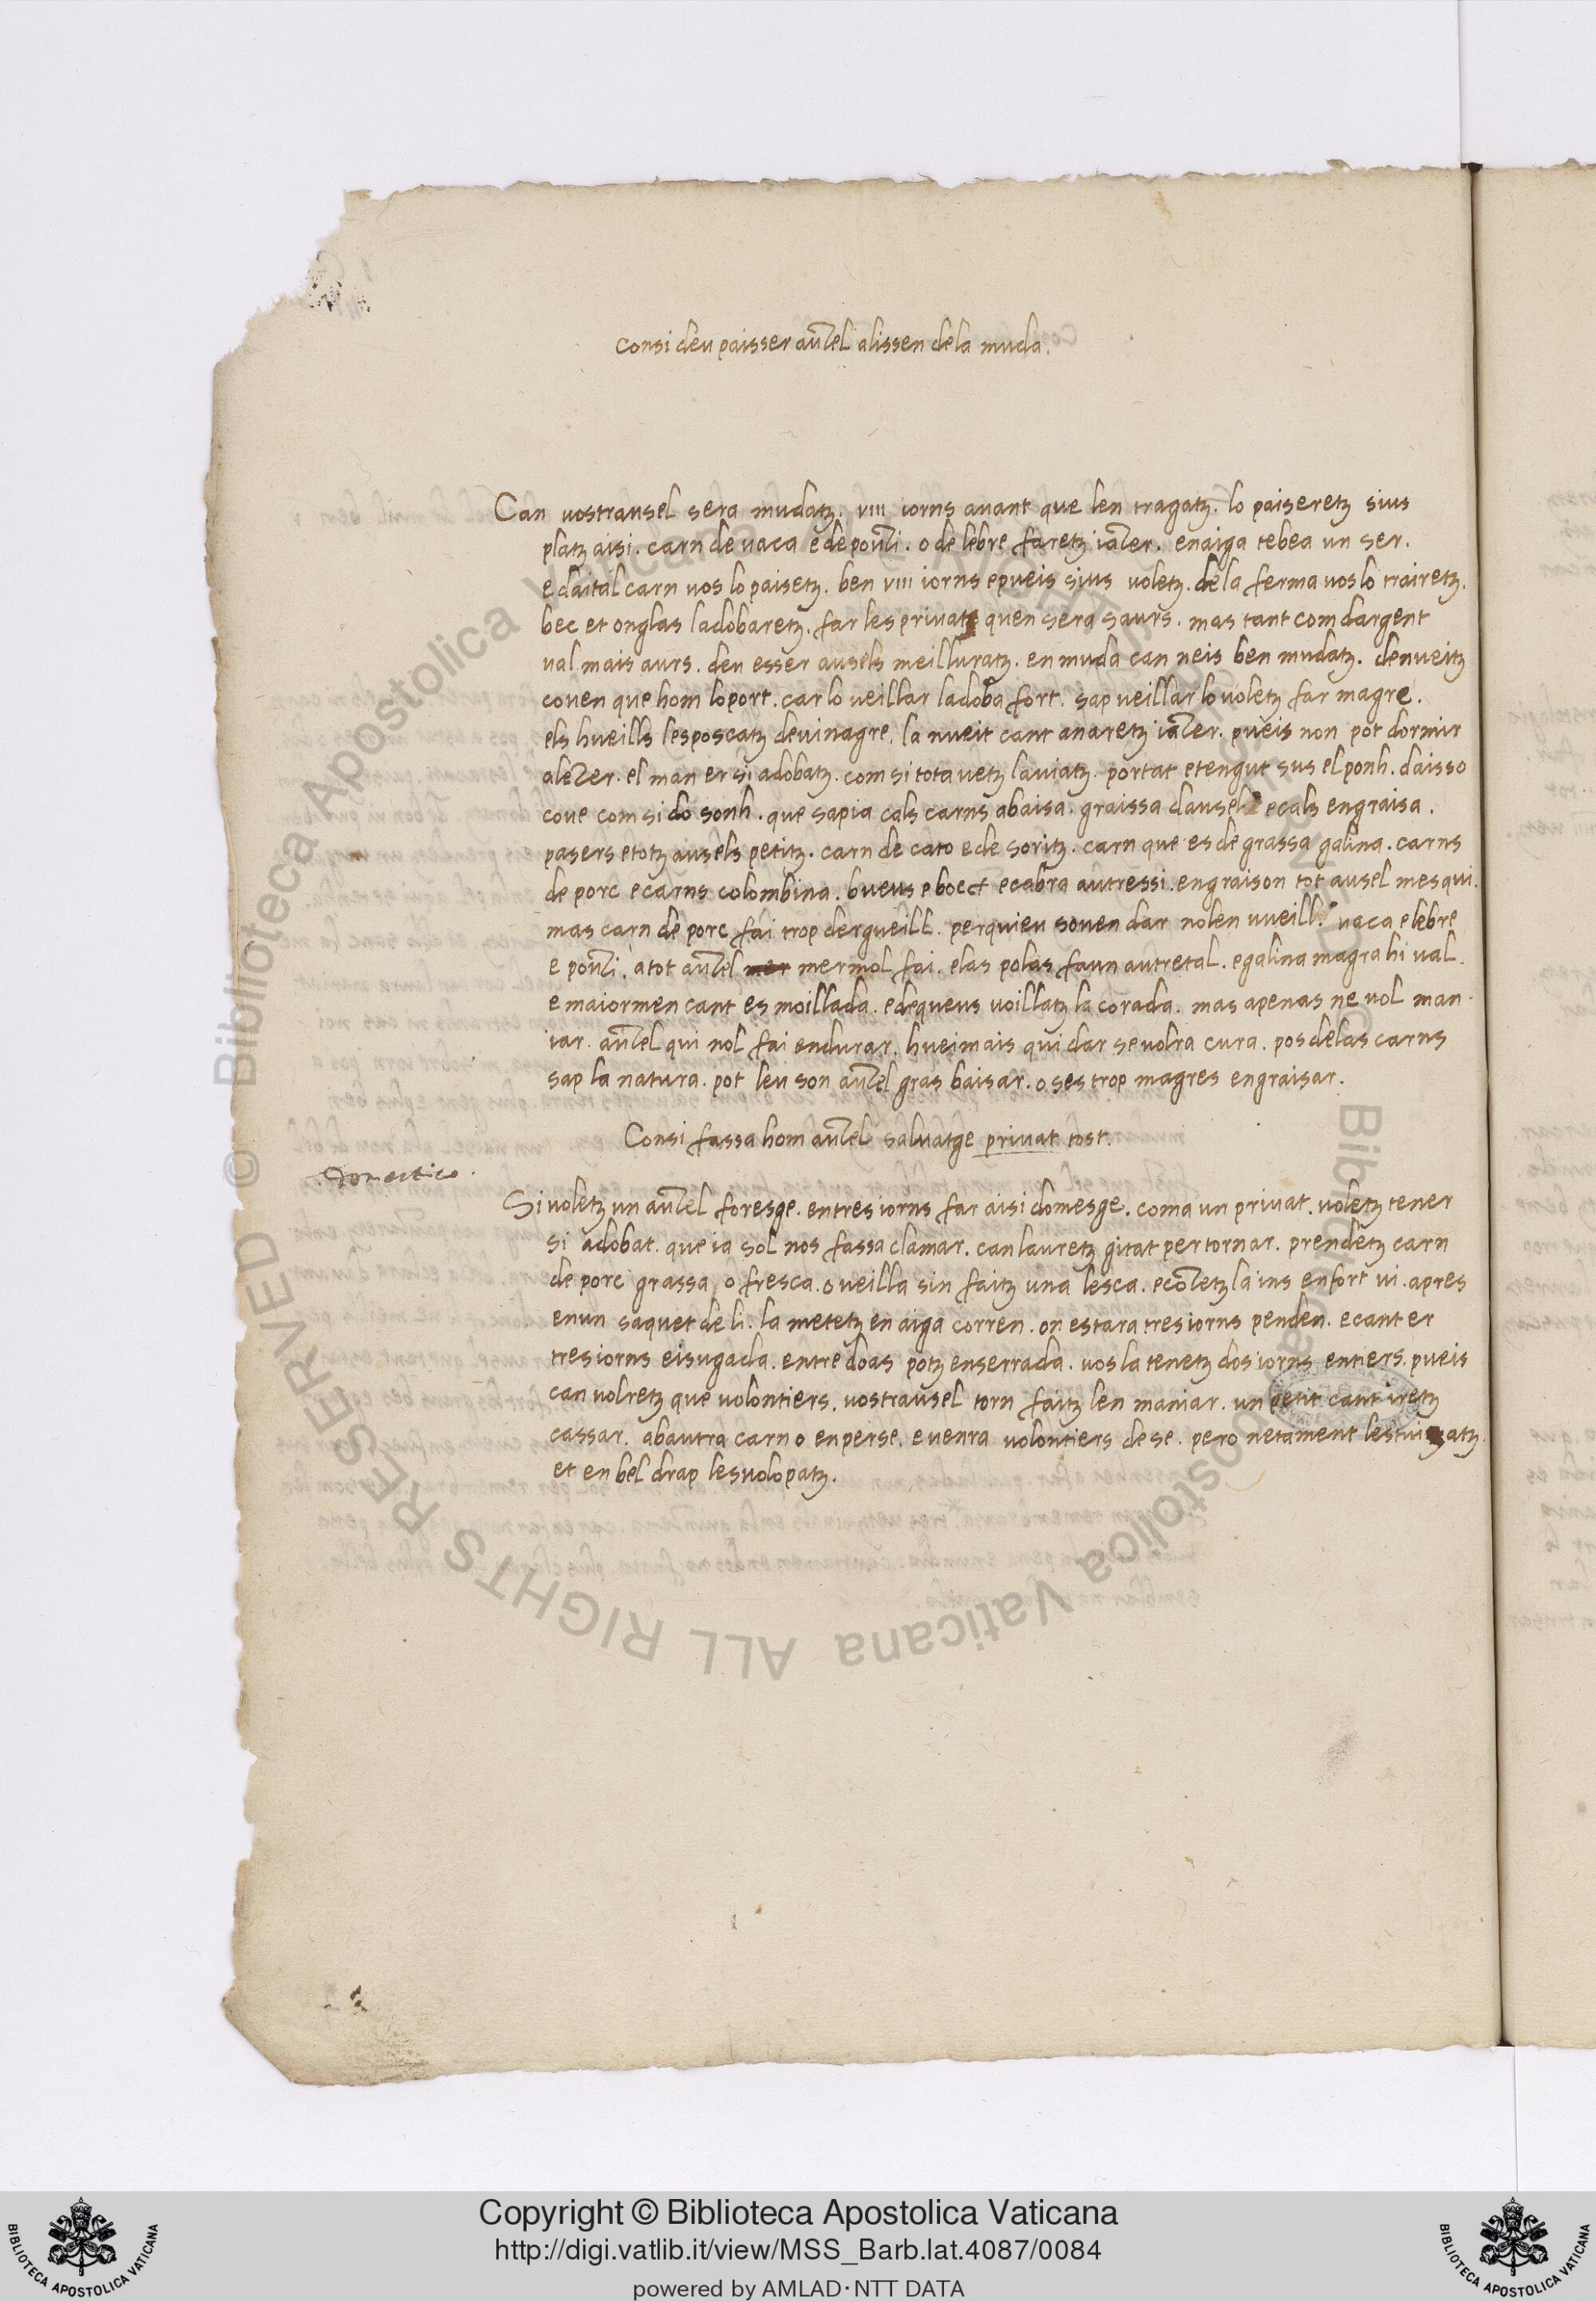 Consi deu paisser auçel alissen dela muda.
Can vostrausel sera mudatz. viii iorns auant que len tragatz. lo paiseretz sius
platz aisi. carn de uaca e de pouçi. o de lebre faretz iaçer. enaiga tebea un ser.
e daital carn uos lo paisetz. ben viii iorns epueis sius uoletz. dela ferma uos lo trairetz.
bec et onglas ladobaretz. far les privatz quen sera saurs. mas tant com dargent
ual mais aurs. deu esser ausels meilluratz. en muda can neis ben mudatz. denueitz
couen que hom lo port. car lo ueillar ladoba fort. sap ueillar lo uoletz far magre.
els hueills lesposcatz deuinagre. la nueit cant anaretz iaçer. pueis non pot dormir
aleçer. el man er si adobatz. com si tota uetz lauiatz. portat etengut sus el ponh. daisso
coue com si do sonh. que sapia cals carns abaisa. graissa dausel ecals engraisa.
pasers etotz ausels petitz. carn de cato ede soritz. carn que es de grassa galina. carns
de porc ecarns colombina. bueus e bocct ecabra autressi. engraison tot ausel mesqui.
mas carn de porc fai trop dergueill. perquieu souen dar nolen uueill. uaca e lebre
e pouçi. atot auçel mer mermol fai. elas polas faun autretal. egalina magra hi ual.
e maiormen cant es moillada. edequeus uoillatz la corada. mas apenas ne uol man
iar. auçel qui nol fai endurar. hueimais qui dar seuolra cura. pos delas carns
sap la natura. pot leu son auçel gras baisar. o ses trop magres engraisar.
Consi fassa hom auçel saluatge privat tost.
Domestico.
Si uoletz un auçel foresge. entres iorns far aisi domesge. coma un privat. uoletz tener
si adobat. que ia sol nos fassa clamar. can lauretz gitat per tornar. prendetz carn
de porc grassa o fresca. o ueilla sin faitz una lesca. ecoçetz la ins enfort ui. apres
enun saquet de li. la metetz en aiga corren. on estara tres iorns penden. ecant er
tres iorns eisugada. entre doas potz enserrada. uos la tenetz dos iorns entiers. pueis
can uolretz que uolontiers. uostrausel torn faitz len maniar. un petit cant iretz
cassar. abautra carn o enperse. e uenra uolontiers dese. pero netament lestuizatz.
et en bel drap lesuolopatz.
Copyright © Biblioteca Apostolica Vaticana
http://digi.vatlib.it/view/MSS_Barb.lat.4087/0084
powered by AMLAD·NTT DATA
BIBLIOTECA APOSTOLICA VATICANA
BIBLIOTECA APOSTOLICA VATICANA
© Biblioteca Apostolica Vaticana ALL RIGHTS RESERVED
© Biblioteca Apostolica Vaticana ALL RIGHTS RESERVED